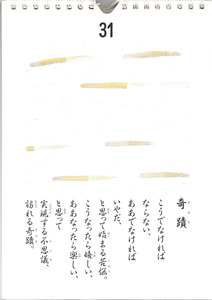 31
奇蹟
こうでなければ
ならない、
ああでなければ
いやだ、
と思って始まる苦悩。
こうなったら嬉しい、
ああなったら楽しい、
と思って
実現する不思議、
訪れる奇蹟。